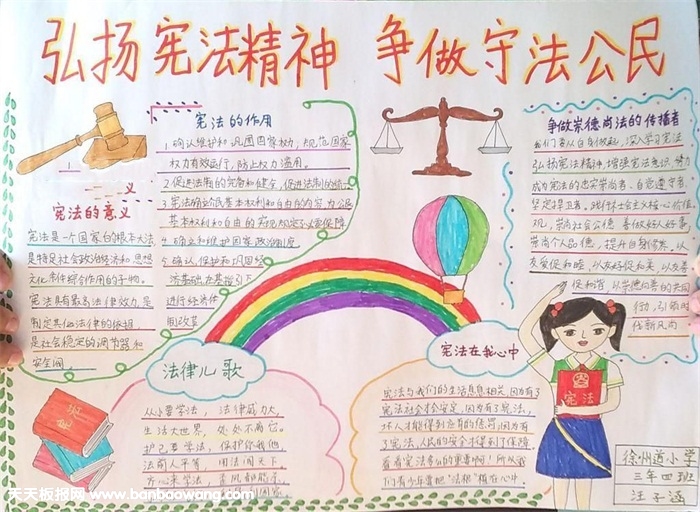 弘扬宪法精神 争做守法公民
宪法的作用
1.确认维护和巩固国家权力,规范国家
权力有效运行,防止权力滥用。
2.促进法制的完备和健全,促进法制的统一
3.宪法确立民基本权利和自由的内容,为公民
基本权利和自由的实现规定必要保障
4.确立和维护国家政治制度
5.确认,保护和巩固经
济基础在其指引下
进行经济体
制改革
义
宪法的意义
宪法是一个国家的根本大法
是特定社会政治经济和思想
文化条件综合作用的产物。
宪法具有最高法律效力,是
制定其他法律的依据
是社会稳定的调节器和
安全阀
争做崇德尚法的传播者
我们要从自身做起,深入学习宪法
弘扬宪法精神,增强宪法意识,努力
成为宪法的忠实崇尚者,自觉遵守者
坚定捍卫者,践行社会主义核心价值
观,崇尚社会公德,善做好人好事,
崇尚个人品德,提升自身修养,以
友爱促和睦,以友好促和美,以友善
促和谐,以崇德向善的共同
行动,引领时
代新风尚
法律儿歌
从小要学法,法律威力大,
生活大世界,处处不离它。
护己要学法,保护你我他,
法前人平等,用法闯天下。
宪法在我心中
宪法与我们的生活息息相关,因为有了
宪法社会才会安定,因为有了宪法,
坏人才能得到应有的惩罚,因为有
了宪法,人民的安全才得到了保障
看看宪法多么的重要啊!所以我
们青少年要把"法根"植在心中.
宪法
宪法
徐州道小学
三年四班
汪子涵
天天板报网 www.banbaowang.com